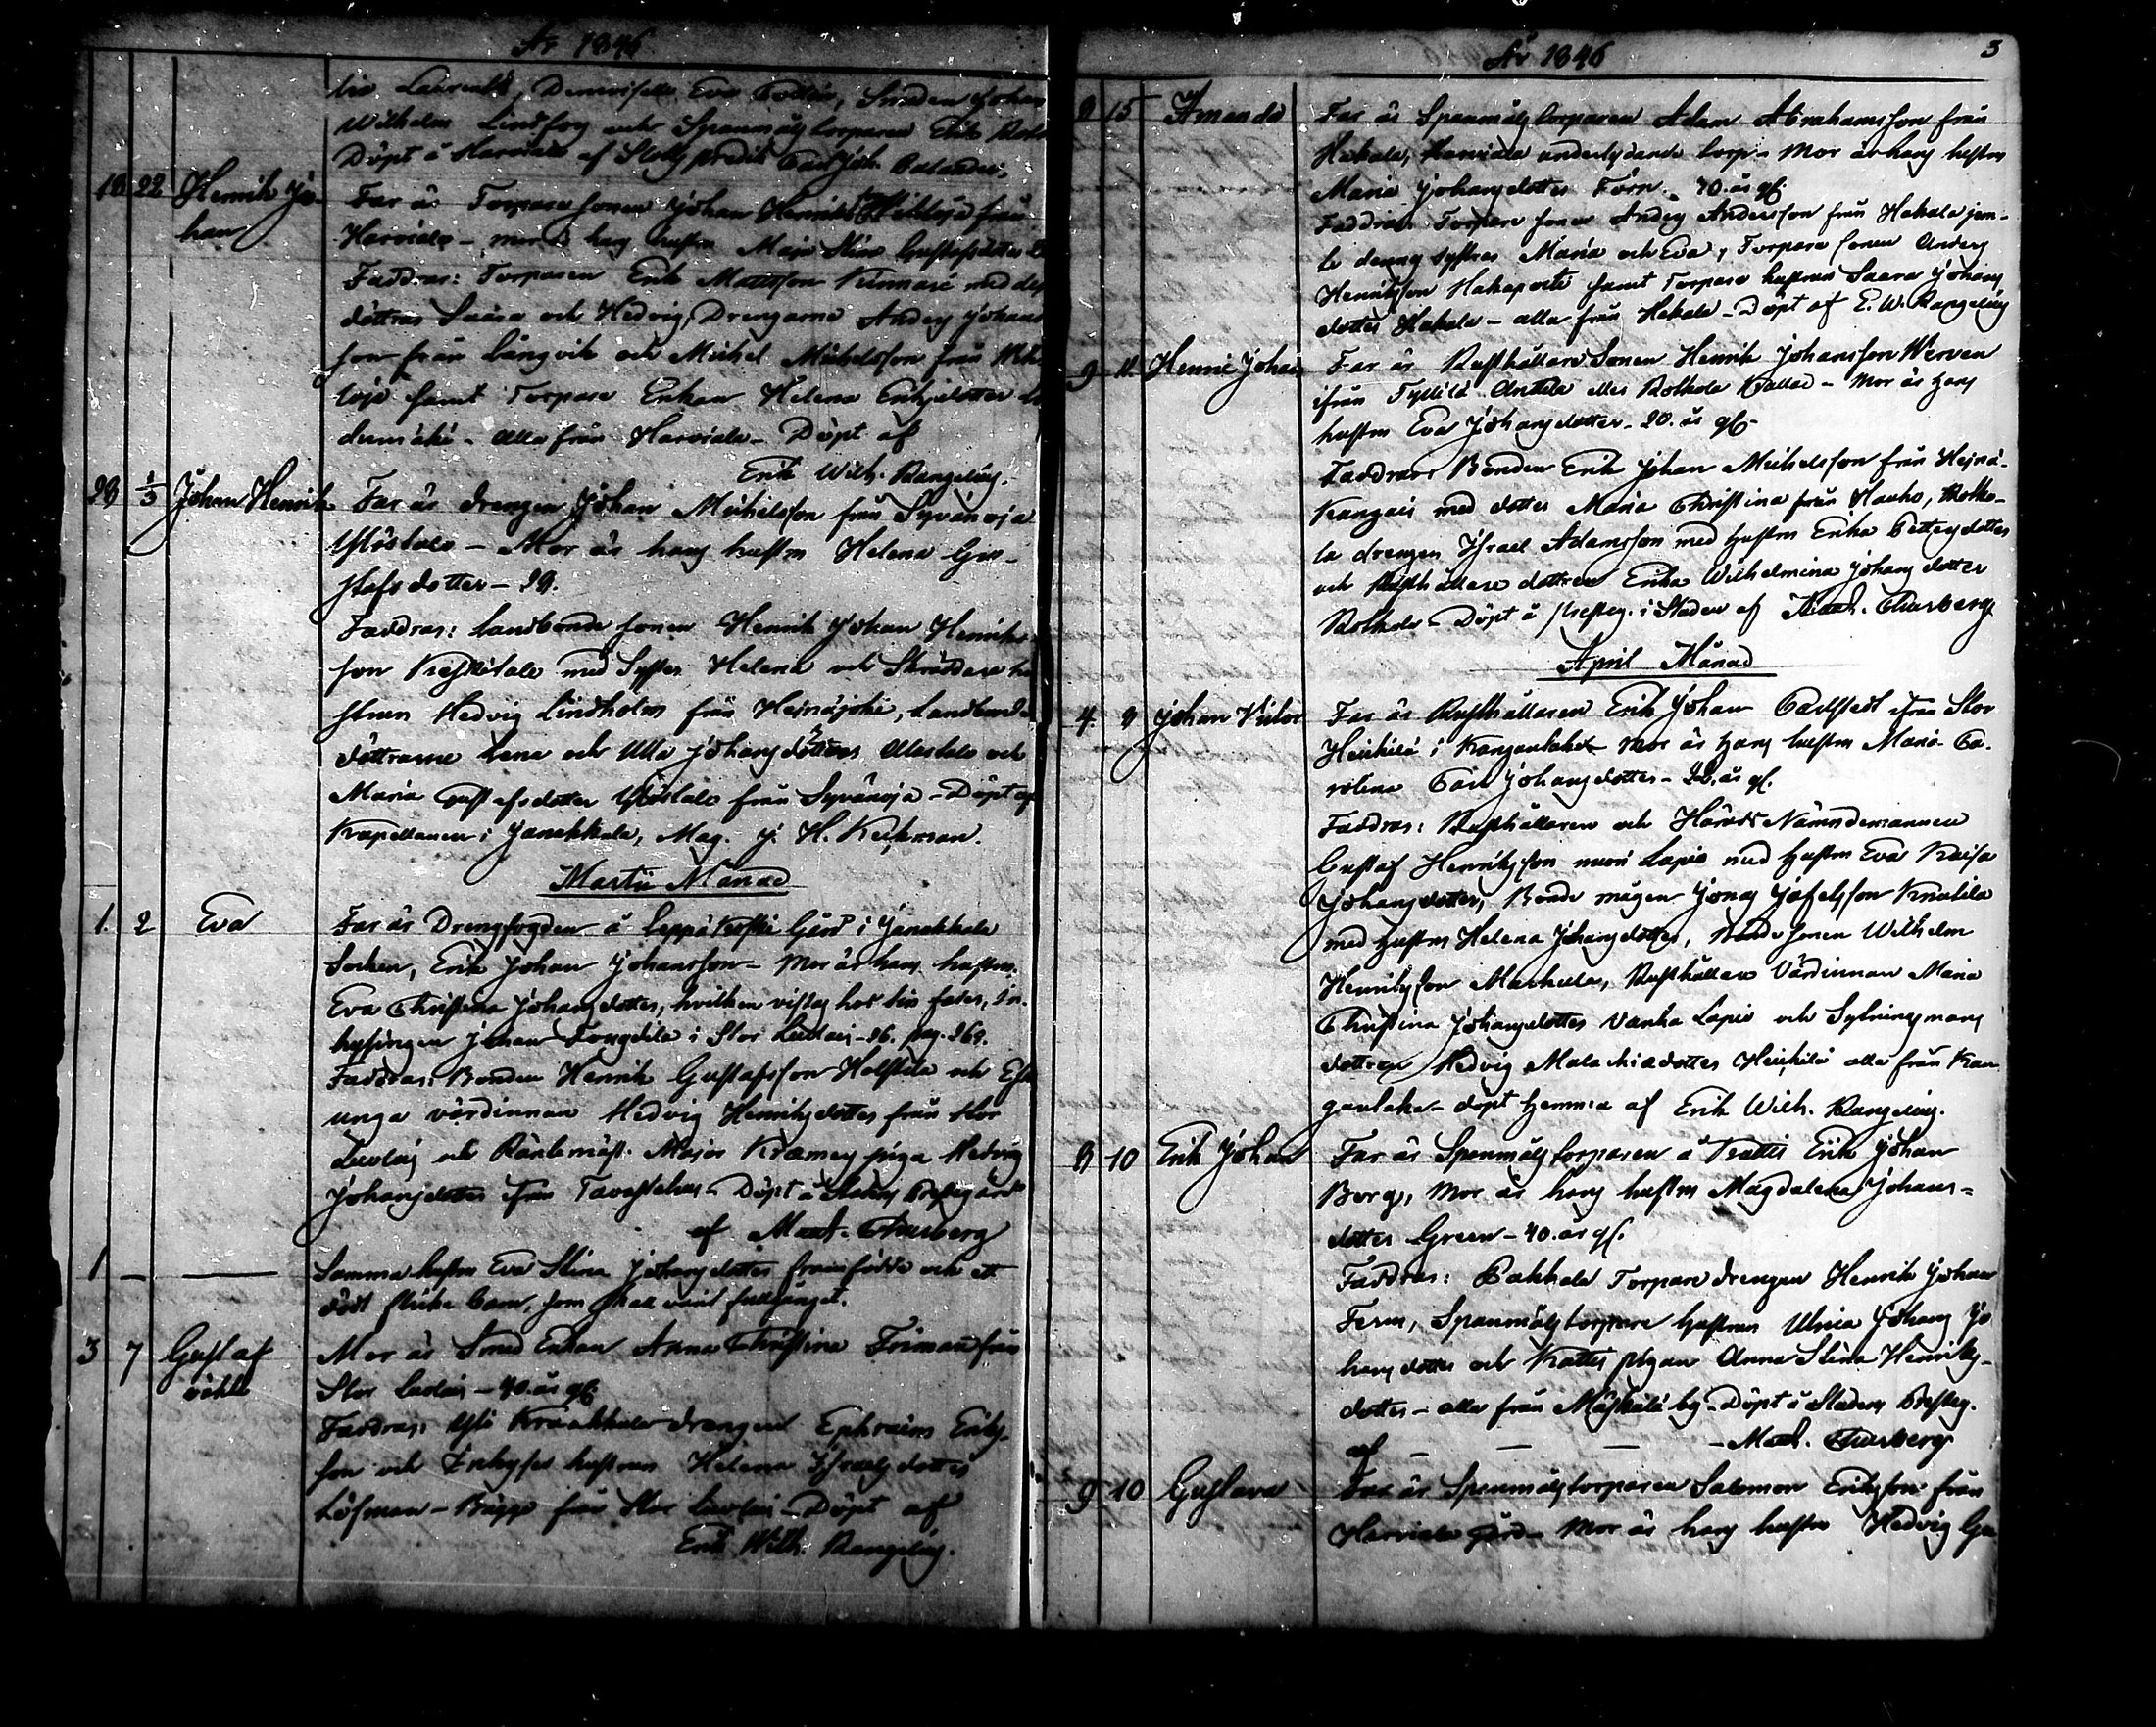 År 1846
Demoiselle Eva Smeden Johan
Wilhelm Lindfors och Spanmåls torparen Erik
Döpt å Harviala af Slotts predik Carl Joh. Bolander.
18 22 Henrik Jo-
han
Far är Torpare sonen Johan från
Harviala - mor är hans hustru Maja Stina Gustafsdotter
Faddrar: Torparen Erik Mattsson med des
döttrar Saara och Hedvig, Drengarne Anders Johans
son från Långvik och Michel Michelsson från
loja samt Torpare Enkan Helena Eriksdotter
alla från Harviala - Döpt af
Erik Wilh. Rangelius.
28 1/3 Johan Henrik
Far är drengen Johan Michelsson från Syvänoja
Ylistalo - Mor är hans hustru Helena Gu-
stafsdotter - 29.
Faddrar: Landbonde sonen Henrik Johan Henriks-
son Keskitalo med Syster Helena och Skräddare hu
strun Hedvig Lindholm från Heinäjoki, Landbonde
döttrarne Lena och Ulla Johansdöttrar Alastalo och
Maria Gustafsdotter Ylistalo från Syvänoja - Döpt af
Kapellanen i Janakkala, Mag. J. H. Keckman.
Martii Månad
1. 2 Eva
Far är Drengfogden å Leppäkoski Gård i Janakkala
Socken, Erik Johan Johansson - Mor är hans hustru
Eva Christina Johansdotter, hvilken vistas hos sin fader, In-
hysingen Johan i Stor Luolais - 26. pag. 269.
Faddrar: Bonden Henrik Gustafsson Holstila och
unga värdinnan Hedvig Henriksdotter från Stor
Luolais och Räntemäst. Major piga Hedvig
Johansdotter från Tavastehus - Döpt å Stadens Prestgård
af Mat. Thusberg
1 — —
Samma hustru Eva Stina Johansdotter framfödde och ett
dödt flicke barn, som skall varit fullgånget.
3 7 Gustaf
oäkta
Mor är Smed Enkan Anna Christina Friman från
Stor Luolais - 40. år gl.
Faddrar: Yli Kraakkala drengen Ephraim Eriks-
son och Inhyses hustrun Helena Israelsdotter
Löfman - från Stor Luolais - Döpt af
Erik Wilh. Rangelius.
År 1846
3
9 15 Amanda
Far är Spanmåls torparen Adam Abrahamsson från
Hakala, Harviala underlydande torp - Mor är hans hustru
Maria Johansdotter Törn. - 40. år gl.
Faddrar: Torpare sonen Anders Andersson från Hakala jem-
te dennes systrar Maria och Eva, Torpare sonen Anders
Henriksson samt Torpare hustrun Saara Johans
dotter Hakala - alla från Hakala - Döpt af E. W. Rangelius
9 11. Henric Johan
Far är Rusthållare Sonen Henrik Johansson Werven
ifrån Anttila eller Rotkola kallad - Mor är hans
hustru Eva Johansdotter - 20. år gl.
Faddrar: Bonden Erik Johan Michelsson från Heinä-
Kangais med dotter Maria Christina från Hauho, Rotko-
la drengen Israel Adamsson med hustru Erika Pettersdotter
och Rusthållare dottren Erika Wilhelmina Johansdotter
Rotkola - Döpt å Presteg. i Staden af Mat. Thusberg
April Månad
4. 9 Johan Victor
Far är Rusthållaren Erik Johan Carlstedt ifrån Stor
Heikkilä i Kanganlaka - Mor är hans hustru Maria Ca-
rolina Johansdotter - 28. år gl.
Faddrar: Rusthållaren och Härads Nämndemannen
Gustaf Henriksson nuori Lapio med hustru Eva Kaisa
Johansdotter, Bonde mågen Jonas Josefsson Knuutila
med hustru Helena Johansdotter, Bonde sonen Wilhelm
Henriksson Markula, Rusthållare Värdinnan Maria
Christina Johansdotter Vanha Lapio och Sytningsmans
dottren Hedvig Malachiædotter Heikkilä alla från Kan
ganlaka - döpt hemma af Erik Wilh. Rangelius.
8 10 Erik Johan
Far är Spanmåls torparen å Katti Erik Johan
Berg, Mor är hans hustru Magdalena Johans-
dotter Green - 40. år gl.
Faddrar: Pakkala Torpare drengen Henrik Johan
Ferm, Spanmåls torpare hustrun Ulrica Johans Jo
hansdotter och Kattis pigan Anna Stina Henriks-
dotter - alla från Mäskälä by - Döpt å Stadens Presteg.
af — — — Mat. Thusberg
9 10 Gustava
Far är Spanmåls torparen Salomon Eriksson från
Harviala gård - Mor är hans hustru Hedvig Gu